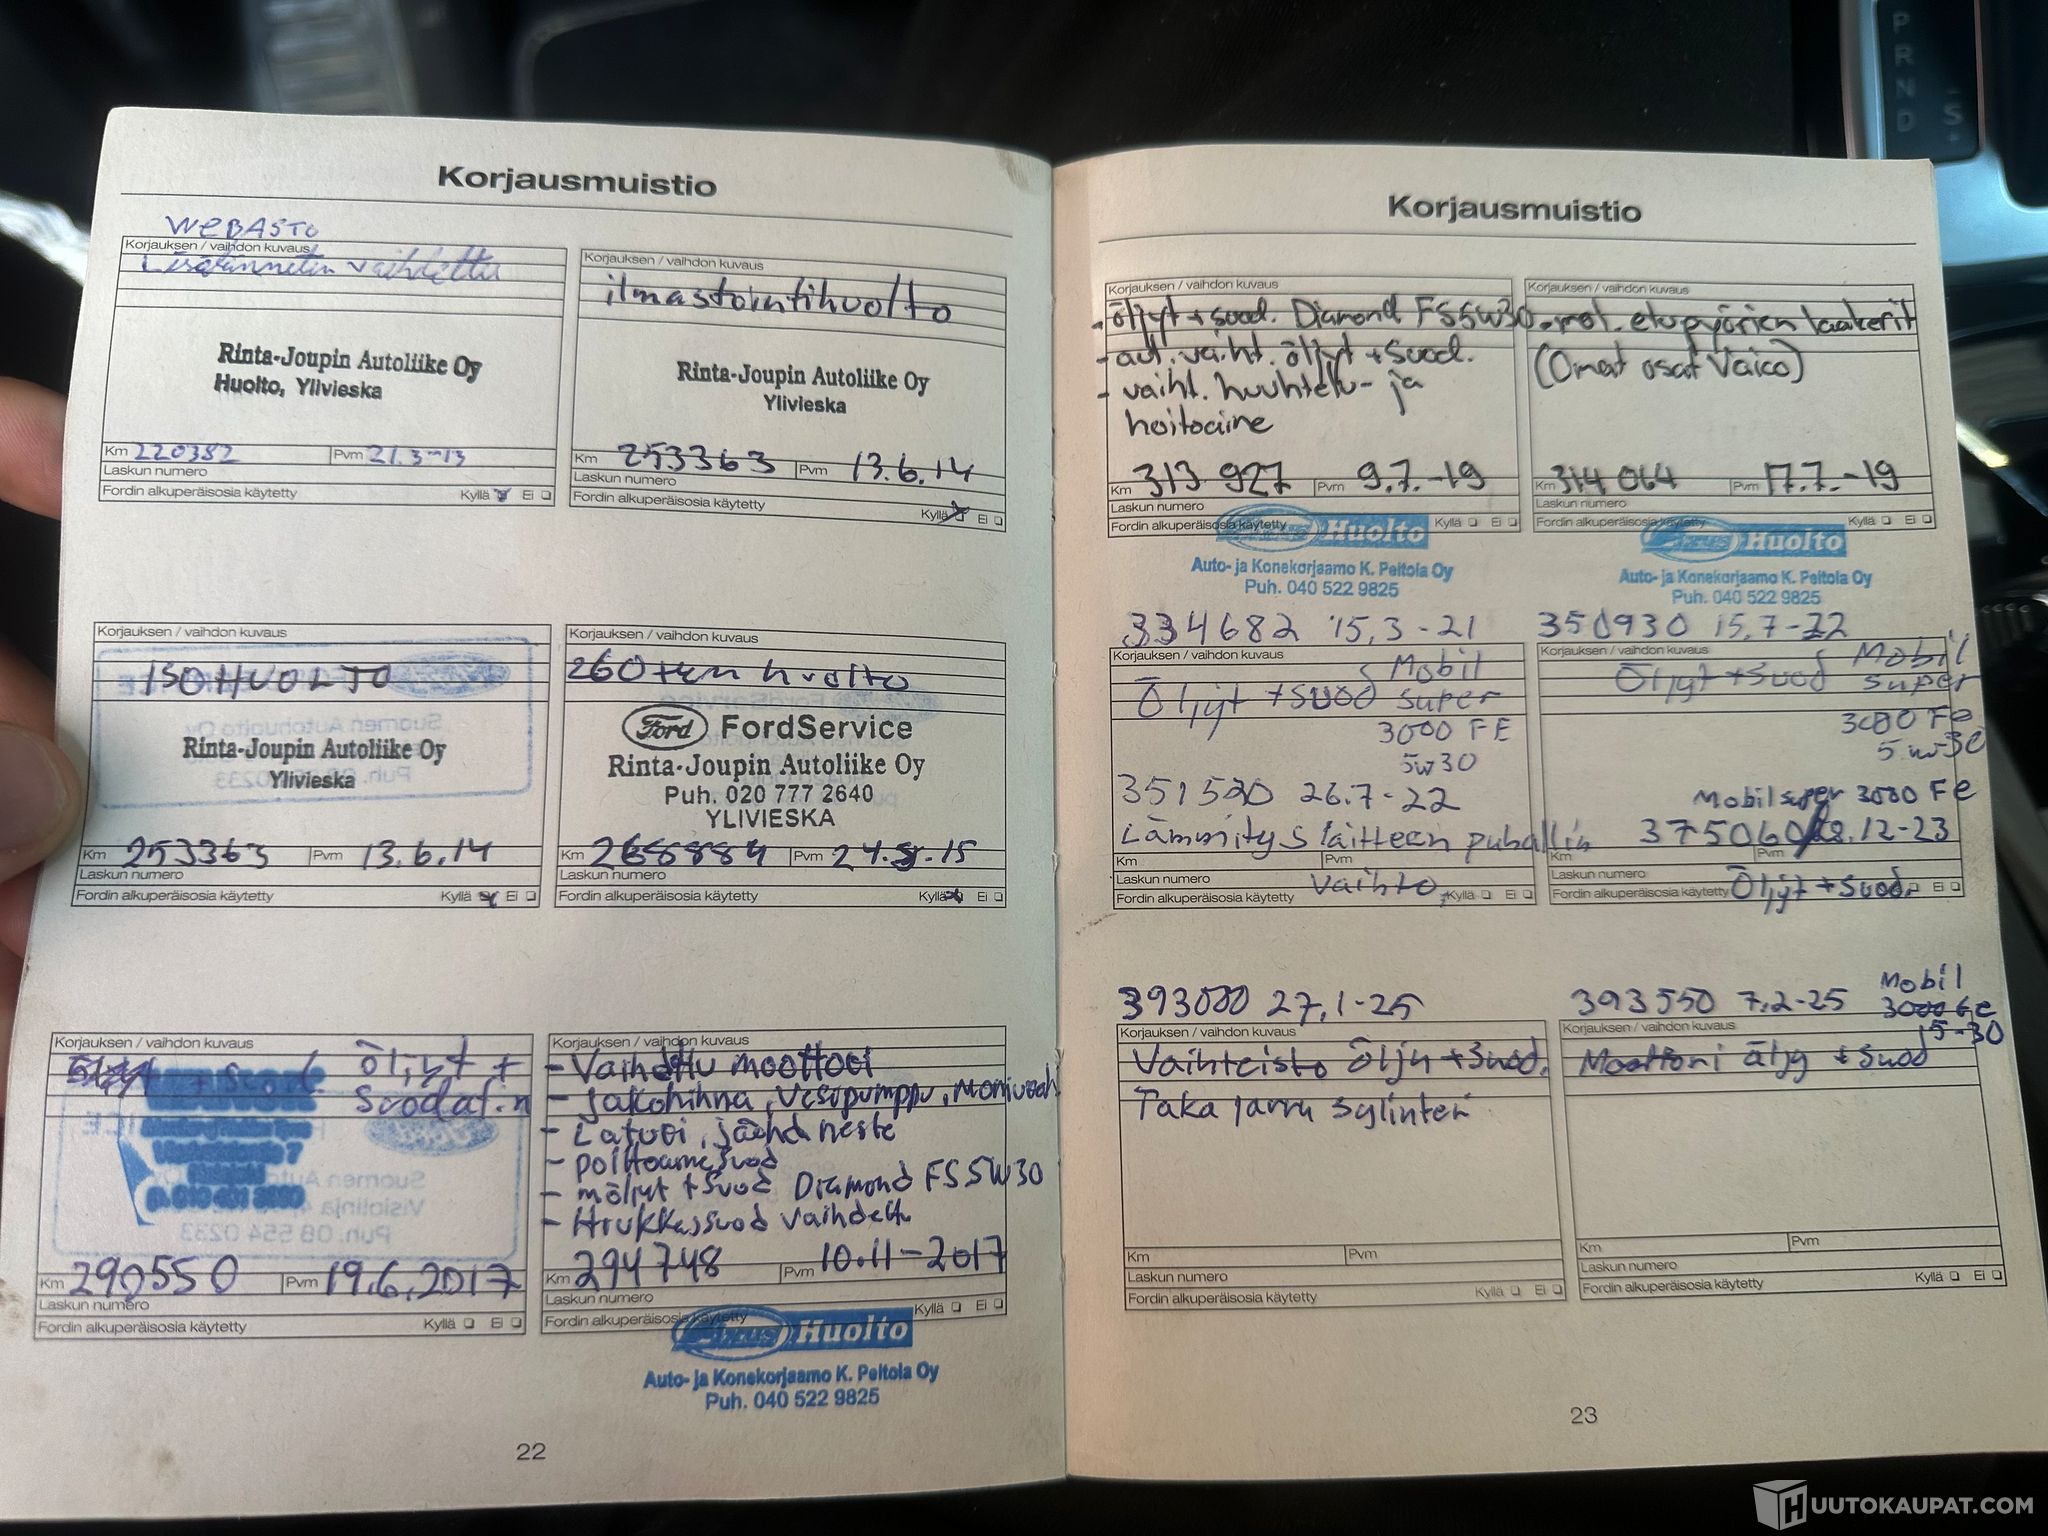 Korjausmuistio
WEBASTO
Korjauksen / vaihdon kuvaus
Lisälämmitin vaihdettu
Rinta-Joupin Autoliike Oy
Huolto, Ylivieska
Km 220382 Pvm 21.3-13
Laskun numero
Fordin alkuperäisosia käytetty Kyllä Ei
Korjauksen / vaihdon kuvaus
ilmastointihuolto
Rinta-Joupin Autoliike Oy
Ylivieska
Km 253363 Pvm 13.6.14
Laskun numero
Fordin alkuperäisosia käytetty
Kyllä Ei
Korjauksen / vaihdon kuvaus
ISO HUOLTO
Rinta-Joupin Autoliike Oy
Ylivieska
Km 253363 Pvm 13.6.14
Laskun numero
Fordin alkuperäisosia käytetty Kyllä Ei
Korjauksen / vaihdon kuvaus
260 tkm huolto
Ford FordService
Rinta-Joupin Autoliike Oy
Puh. 020 777 2640
YLIVIESKA
Km 268884 Pvm 24.5.15
Laskun numero
Fordin alkuperäisosia käytetty Kyllä Ei
Korjauksen / vaihdon kuvaus
öljyt +
Suodatin
Km 290550 Pvm 19.6.2017
Laskun numero
Fordin alkuperäisosia käytetty Kyllä Ei
Korjauksen / vaihdon kuvaus
- Vaihdettu moottori
- Jakohihna, Vesipumppu, Moniurah
- Laturi, jäähd neste
- polttoainesuod
- möljyt + Suod Diamond FS 5W30
- Hiukkassuod vaihdettu
Km 294748 Pvm 10.11-2017
Laskun numero
Fordin alkuperäisosia käytetty Kyllä Ei
Huolto
Auto- ja Konekorjaamo K. Peltola Oy
Puh. 040 522 9825
22
Korjausmuistio
Korjauksen / vaihdon kuvaus
- öljyt + suod. Diamond FS 5W30
- aut. vaiht. öljyt + Suod.
- vaiht. huuhtelu- ja
hoitoaine
Km 313 927 Pvm 9.7.-19
Laskun numero
Fordin alkuperäisosia käytetty Kyllä Ei
Huolto
Auto- ja Konekorjaamo K. Peltola Oy
Puh. 040 522 9825
Korjauksen / vaihdon kuvaus
- mol. etupyörien laakerit
(Omat osat Vaico)
Km 314 064 Pvm 17.7.-19
Laskun numero
Fordin alkuperäisosia käytetty Kyllä Ei
Huolto
Auto- ja Konekorjaamo K. Peltola Oy
Puh. 040 522 9825
334682 15.3-21
Korjauksen / vaihdon kuvaus
Mobil
Öljyt + suod super
3000 FE
5w30
351520 26.7-22
Lämmityslaitteen puhallin
Km Pvm
Laskun numero
vaihto.
Fordin alkuperäisosia käytetty Kyllä Ei
350930 15.7-22
Korjauksen / vaihdon kuvaus
Mobil
Öljyt + Suod super
3000 Fe
5w-30
Mobil super 3000 Fe
375060 28.12-23
Km Pvm
Laskun numero
Fordin alkuperäisosia käytetty Öljyt + Suod. Ei
393000 27.1-25
Korjauksen / vaihdon kuvaus
Vaihteisto öljy + Suod.
Taka jarru sylinteri
Km Pvm
Laskun numero
Fordin alkuperäisosia käytetty Kyllä Ei
393550 7.2-25 Mobil
3000 Fe
5-30
Korjauksen / vaihdon kuvaus
Moottori öljy + Suod
Km Pvm
Laskun numero
Fordin alkuperäisosia käytetty Kyllä Ei
23
P
R
N
D
S
HUUTOKAUPAT.COM